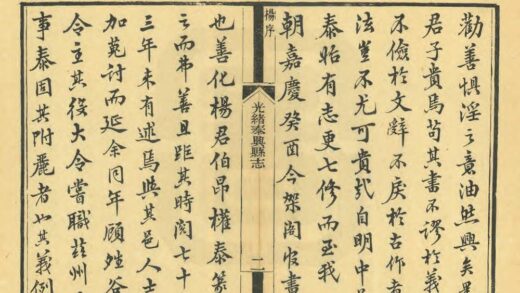 勸善懼淫之意油然興矣是
君子貴焉苟其書不謬於義
不儉於文辭不戾於古作者
法豈不尤可貴哉自明中
泰始有志更七修而至我
朝嘉慶癸酉今架閣書
楊序
光緒泰興縣志
二
也善化楊君伯昂權泰篆
之而弗善且距其時閱七十
三年未有述焉與其邑人士
加蒐討而延余同年顧谷
令主其役大令嘗職茲州
事泰固其附麗者也其義例